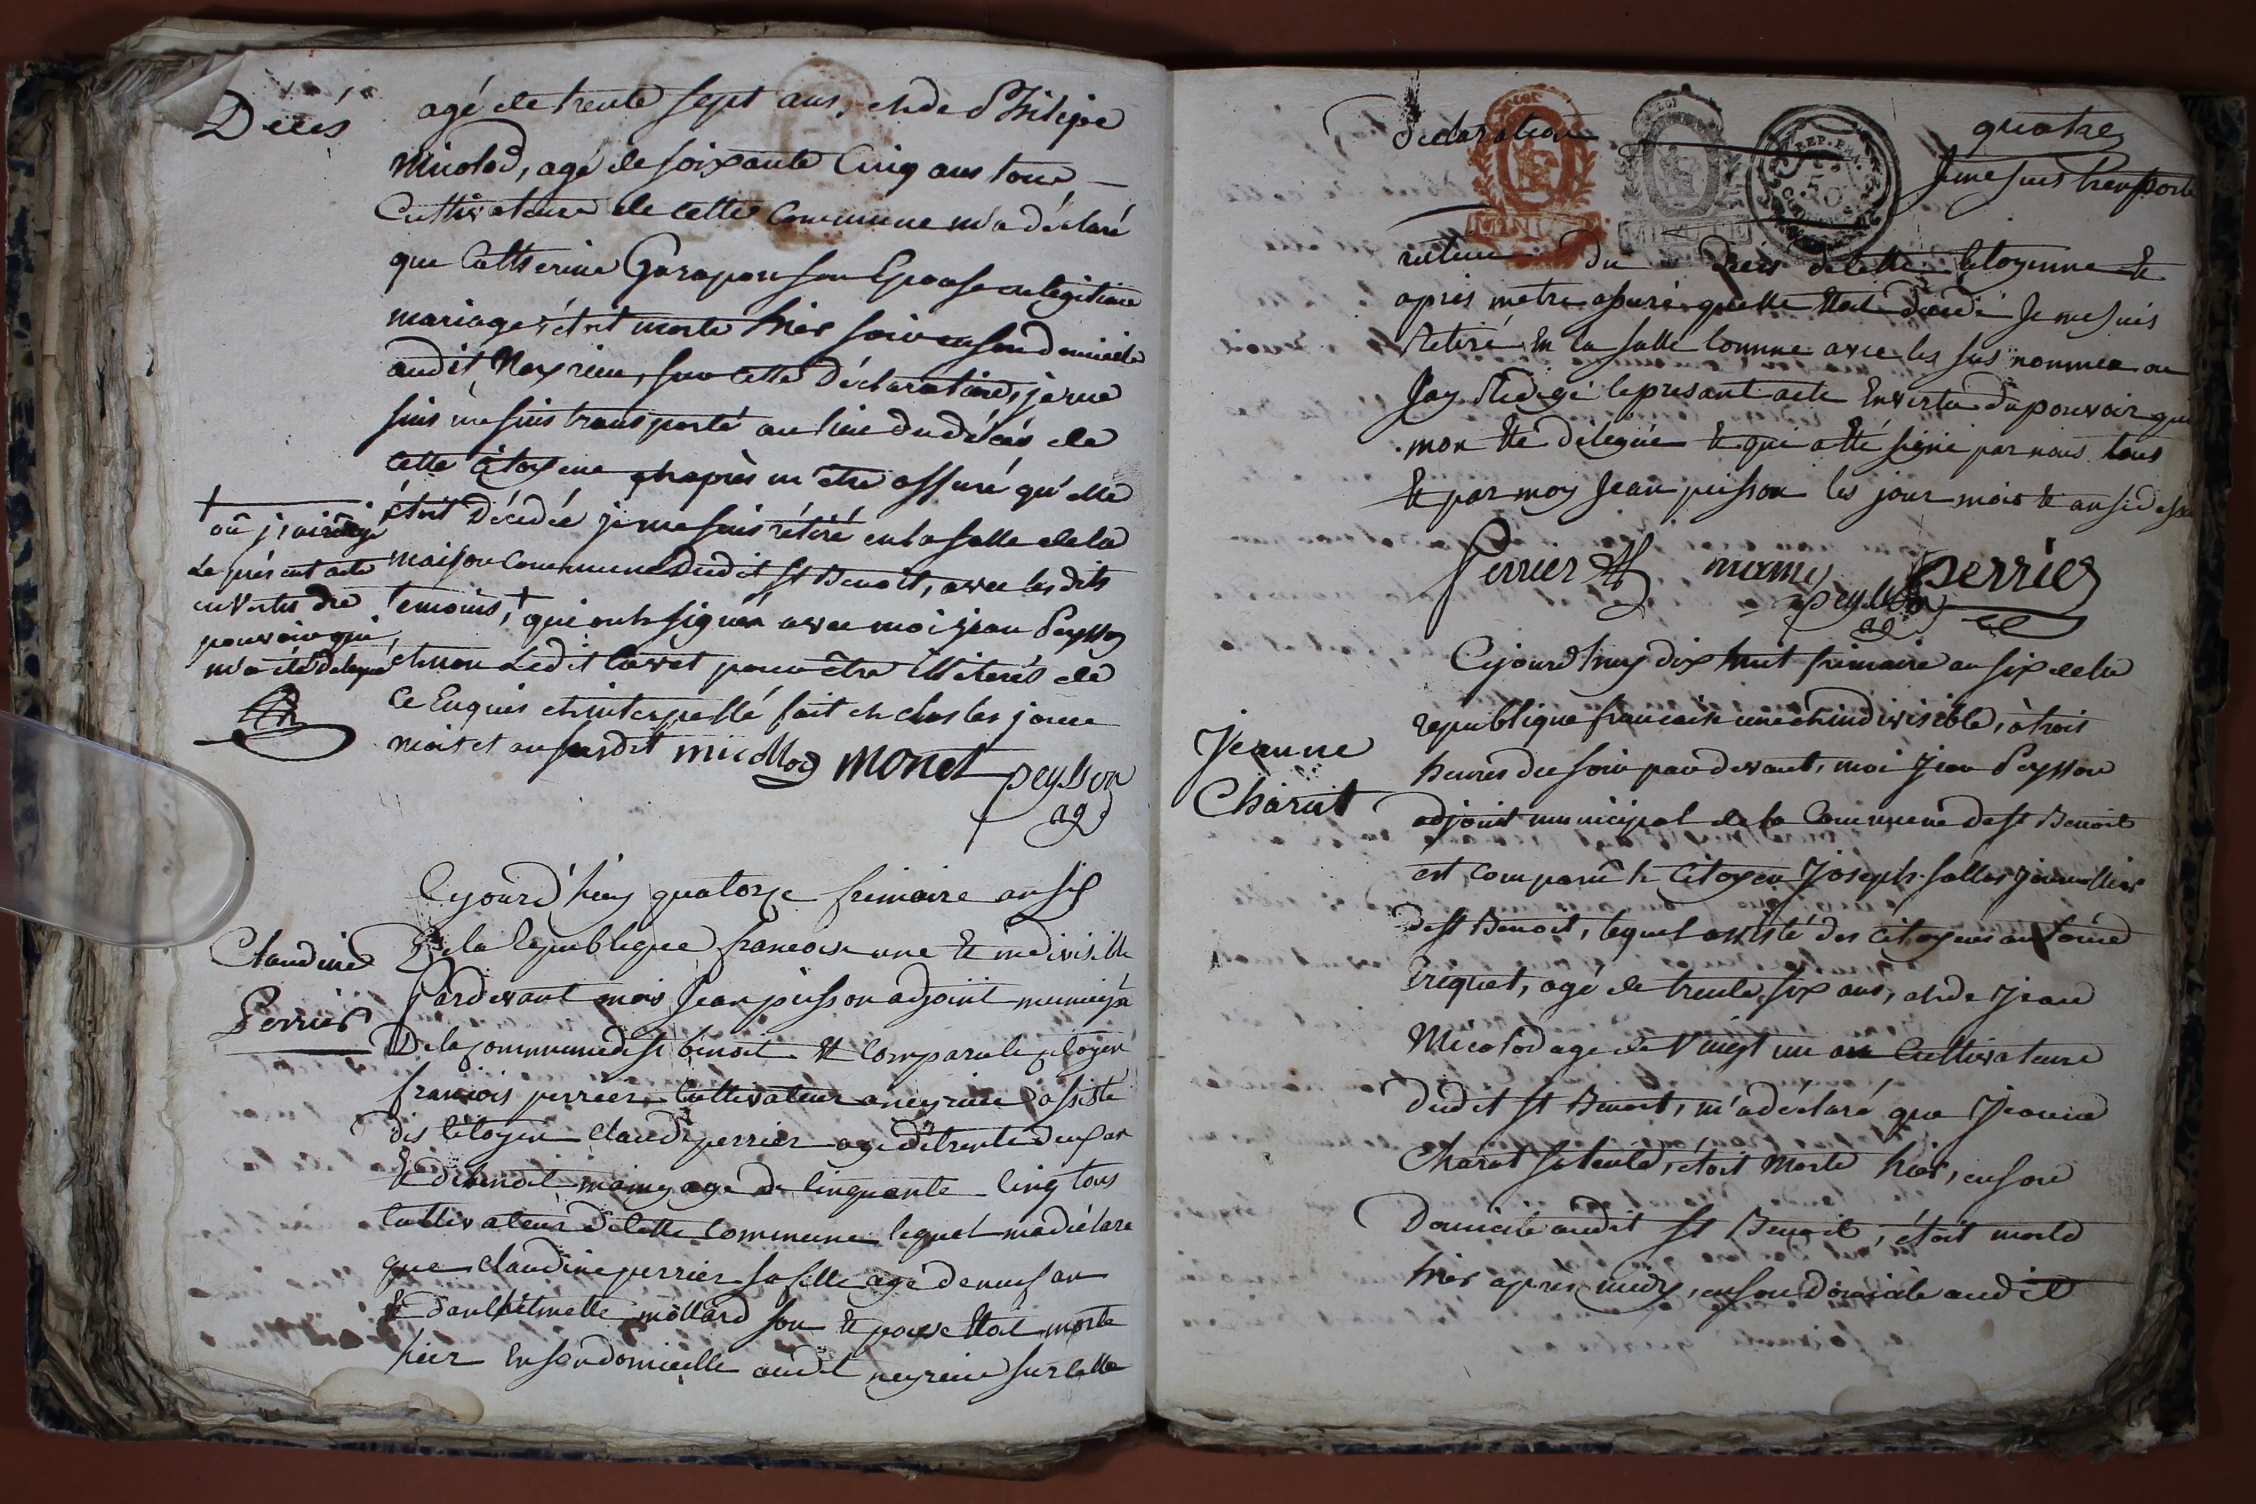 Décés
agé de trente sept ans, et de Philipe
Micolod, agé de soixante cinq ans tous
Cultivateurs de cette Commune m'a déclaré
que Catherine Garapon son Epouse en légitime
mariage, étoit morte hier soir en son domicile
audit Neyrieu, sur cette Déclaration, je me
suis me suis transporté au lieu du décés de
cette Citoyene et après m'être assuré qu'elle
étoit Décédée je me suis rétiré en la salle de la
maison Commune Dudit St Benoit, avec les dits
temoins, † qui ont signés avec moi jean Peysson
et non Ledit pour être illiterés de
Ce Enquis et interpellé fait et clos les jour
mois et an susdit micollod monet peysson
agd
†
où j'ai rédigé
Le présent acte
en vertu du
pouvoir qui
m'a été délégué
Cejourd'huy quatorze frimaire an six
Claudine
Perrier
de la republique francoise une et indivisible
Pardevant mois Jean peisson adjoint municipa
De la commune de st benoit et comparu le citoyen
francois perrier Cultivateur a neyrieu assisté
des citoyen claude perrier agé de trente deux an
et de benoit mamy agé de cinquante cinq tous
cultivateur de cette commune lequel ma déclaré
que claudine perrier sa fille agé de neuf an
et mollard son epouse etoit morte
hier en son domicille audit neyrieu sur cette
quatre
Declaration
Je me suis transporté
au lieu du Décés de cette citoyenne et
après metre assuré quelle etoit décédé Je me suis
Retiré en la salle comune avec les sus nommé ou
Jay Redigé le présant acte en vertu du pouvoir qui
mon été délégué et qui a été signé par nous tous
et par moy Jean peisson les jour mois et an sidessu
Perrier mamy perrier
peysson
agd
Jeanne
Charut
Cejourd'huy dix huit frimaire an six de la
republique francaise une et indivisible, à trois
heures du soir par devant, moi Jean Peysson
adjoint municipal de la Commune de St Benoit
est comparû le Citoyen Joseph Sallet journallier
de St Benoit, lequel assisté des citoyens antoine
Criquet, agé de trente six ans, et de Jean
Micolod agé de vingt un an Cultivateurs
dudit St Benoit, m'a déclaré que Jeanne
Charut sa tente, étoit morte hier, en son
Domicile audit St Benoit, étoit morte
hier après midy, en son Domicile audit